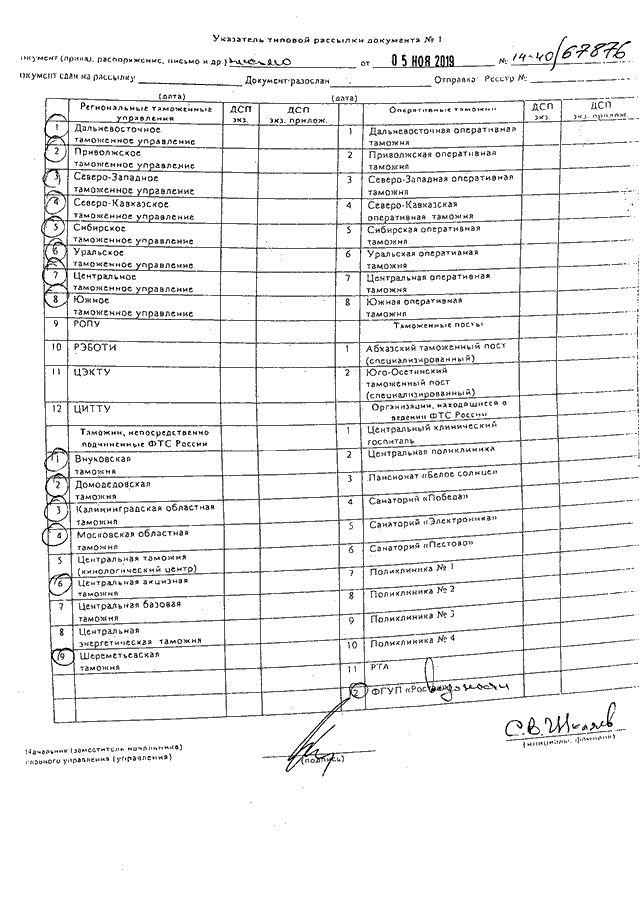 Указатель типовой рассылки документа № 1
окумент (приказ, распоряжение, письмо и др.) письмо от 05 НОЯ 2019 № 14-40/67876
окумент сдан на рассылку Документ разослан Отправка: Реестр №:
(дата) (дата)
Региональные таможенные управления ДСП экз. ДСП экз. прилож. Оперативные таможни ДСП экз. ДСП экз. прилож.
1 Дальневосточное таможенное управление 1 Дальневосточная оперативная таможня
2 Приволжское таможенное управление 2 Приволжская оперативная таможня
3 Северо-Западное таможенное управление 3 Северо-Западная оперативная таможня
4 Северо-Кавказское таможенное управление 4 Северо-Кавказская оперативная таможня
5 Сибирское таможенное управление 5 Сибирская оперативная таможня
6 Уральское таможенное управление 6 Уральская оперативная таможня
7 Центральное таможенное управление 7 Центральная оперативная таможня
8 Южное таможенное управление 8 Южная оперативная таможня
9 РОПУ Таможенные посты
10 РЭБОТИ 1 Абхазский таможенный пост (специализированный)
11 ЦЭКТУ 2 Юго-Осетинский таможенный пост (специализированный)
12 ЦИТТУ Организации, находящиеся в ведении ФТС России
Таможни, непосредственно подчиненные ФТС России 1 Центральный клинический госпиталь
1 Внуковская таможня 2 Центральная поликлиника
2 Домодедовская таможня 3 Пансионат «Белое солнце»
3 Калининградская областная таможня 4 Санаторий «Победа»
4 Московская областная таможня 5 Санаторий «Электроника»
5 Центральная таможня (кинологический центр) 6 Санаторий «Пестово»
6 Центральная акцизная таможня 7 Поликлиника № 1
7 Центральная базовая таможня 8 Поликлиника № 2
8 Центральная энергетическая таможня 9 Поликлиника № 3
9 Шереметьевская таможня 10 Поликлиника № 4
11 РТА
ФГУП «Рос
Начальник (заместитель начальника)
главного управления (управления)
(подпись)
С.В. Шкляев
(инициалы, фамилия)